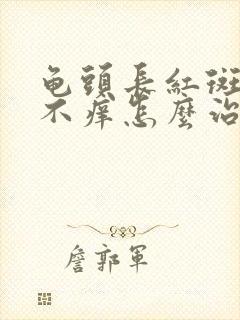 龟頭長紅斑
不癢怎麼治
詹郭軍